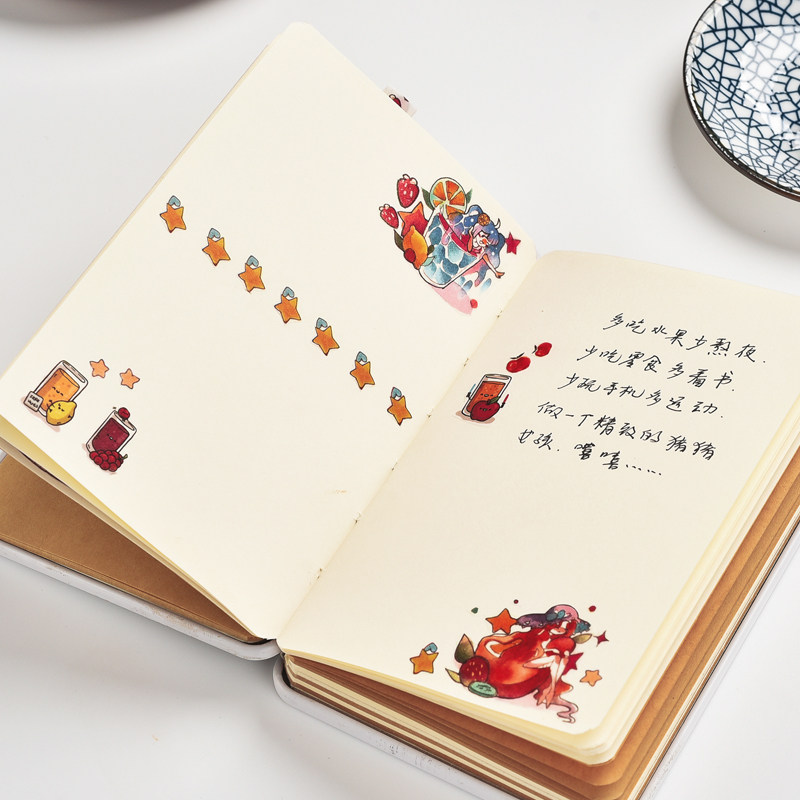 多吃水果少熬夜.
少吃零食多看书.
少玩手机多运动.
做一个精致的猪猪
女孩.嘻嘻……